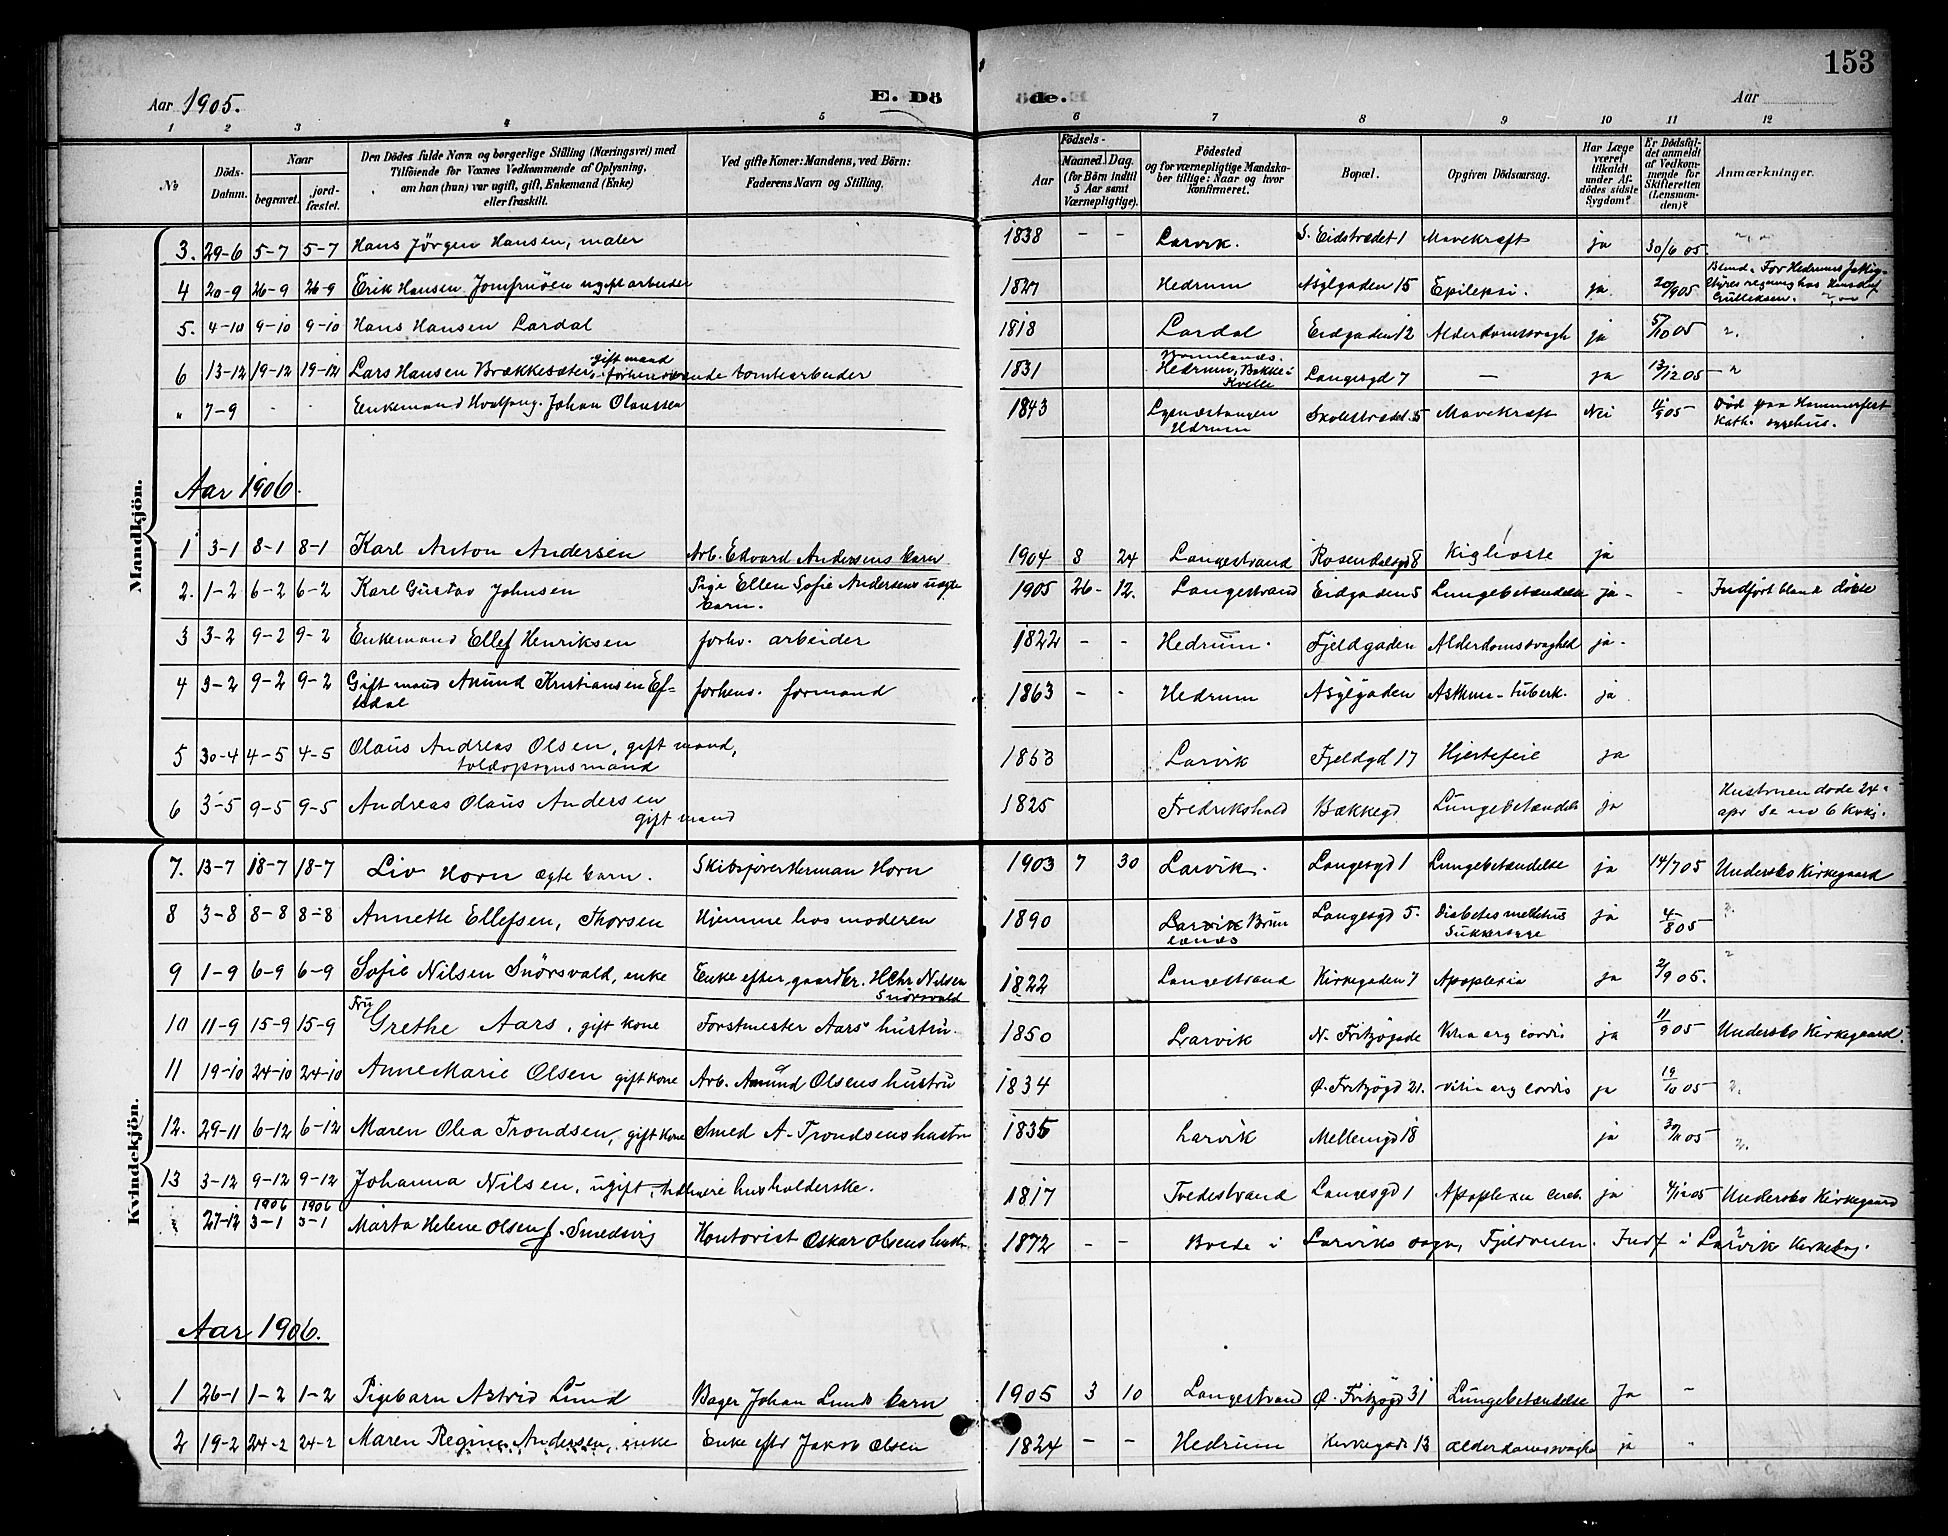 153
Aar 1905. E. Dö de. Aar
1 2 3 4 5 6 7 8 9 10 11 12
No
Döds-Datum.
Naar
begravet.
jord-fæstet.
Den Dödes fulde Navn og borgerlige Stilling (Næringsvei) med
Tilföiende for Voxnes Vedkommende af Oplysning,
om han (hun) var ugift, gift, Enkemand (Enke)
eller fraskilt.
Ved gifte Koner: Mandens, ved Börn:
Faderens Navn og Stilling.
Födsels-
Aar
Maaned. Dag.
(for Börn indtil
5 Aar samt
Værnepligtige).
Födested
og for værnepligtige Mandska-
ber tillige: Naar og hvor
konfirmeret.
Bopæl.
Opgiven Dödsaarsag.
Har Læge
været
tilkaldt
under Af-
dödes sidste
Sygdom?
Er Dödsfal-
det anmeldt
af Vedkom-
mende for
Skifteretten
(Lensman-
den)?
Anmærkninger.
Mandkjön.
3. 29-6 5-7 5-7 Hans Jörgen Hansen, maler 1838 - - Larvik. S. Eidstrædet 1 Mavekræft ja 30/6 05
4 20-9 26-9 26-9 Erik Hansen Jomfruöen ugift arbeider 1827 Hedrum Asylgaden 15 Epilepsi. ja 20/9 05 Blind. For Hedrums fattig-
styres regning hos
Gulleksen.
5. 4-10 9-10 9-10 Hans Hansen Lardal 1818 Lardal Eidgaden 12 Alderdomssvagh ja 5/10 05 "
6 13-12 19-12 19-12 Lars Hansen Brækkesæter gift mand forhenværende tomtearbeider 1831 Hedrum, Bakke i
Kvelle Langesgd 7 - ja 13/12 05 - "
" 7-9 - - Enkemand Hvalfang. Johan Olaussen 1843
Hedrum Skolestrædet 5 Mavekræft Nei 11/9 05 Död paa Hammerfest
Kath. sygehus.
Aar 1906.
1 3-1 8-1 8-1 Karl Anton Andersen Arb. Edvard Andersens barn 1904 8 24 Langestrand Rosendalsgd 8 Kighoste ja
2. 1-2 6-2 6-2 Karl Gustav Johnsen Pige Ellen Sofie Andersens uægte
barn. 1905 26- 12. Langestrand Eidgaden 5 Lungebetændelse ja - - Indfört blandt döbte
3 3-2 9-2 9-2 Enkemand Ellef Henriksen forhv. arbeider 1822 - - Hedrum. Fjeldgaden Alderdomssvaghed ja -
4 3-2 9-2 9-2 Gift mand Anund Kristiansen Ef=
tedal forhens. formand 1863 - - Hedrum Asylgaden Asthma-tuberk. ja
5 30-4 4-5 4-5 Olaus Andreas Olsen, gift mand,
toldopsynsmand 1853 Larvik Fjeldgd 17 Hjertefeil ja
6 3-5 9-5 9-5 Andreas Olaus Andersen
gift mand 1825 Fredrikshald Bækkegd Lungebetændels ja Hustruen döde 24-
apr se no 6 kvkj.
Kvindekjön.
7. 13-7 18-7 18-7 Liv Horn ægte barn. Skibsförer Herman Horn 1903 7 30 Larvik. Langesgd 1 Lungebetændelse ja 14/7 05 Undersbo Kirkegaard
8 3-8 8-8 8-8 Annette Ellefsen, Thorsen Hjemme hos moderen 1890 Larvik Brun
lanæs Langesgd 5. Diabetes mellitus
Sukkersyge ja 4/8 05 "
9 1-9 6-9 6-9 Sofie Nilsen Snörsvald, enke Enke efter gaardbr. H Chr Nilsen
Snörsvald 1822 Langestrand Kirkegaden 7 Apoplexia ja 2/9 05. "
10 11-9 15-9 15-9 Fru Grethe Aars, gift kone Forstmester Aars' hustru. 1850 Larvik N. Fritzögade Vitia org cordis ja 11/9 05 Undersbo Kirkegaard.
11 19-10 24-10 24-10 Anne Marie Olsen gift kone Arb. Amund Olsens hustru 1834 Ø. Fritzögd 21. vitia org cordis ja 19/10 05 "
12. 29-11 6-12 6-12 Maren Olea Trondsen, gift kone Smed A. Trondsens hustru 1835 Larvik Mellemgd 18 ja 30/11 05 "
13 3-12 9-12 9-12 Johanna Nilsen, ugift, tidligere husholderske. 1817 Tvedestrand Langesgd 1 Apoplexia cereb. ja 4/12 05 Undersbo Kirkegaard
" 27-12 1906 3-1 1906 3-1 Marta Helene Olsen f. Smedsvig Kontorist Oskar Olsens hustru 1872 - - Boede i Larviks sogn, Fjeldveien. Indf i Larvik Kirkebog.
Aar 1906.
1 26-1 1-2 1-2 Pigebarn Astrid Lund Bager Johan Lunds barn 1905 3 10 Langestrand Ø. Fritzögd 31 Lungebetændelse Ja -
2 19-2 24-2 24-2 Maren Regine Andersen, enke Enke eftr Jakob Olsen 1824 - - Hedrum Kirkegade 13 Alderdomssvaghe ja "